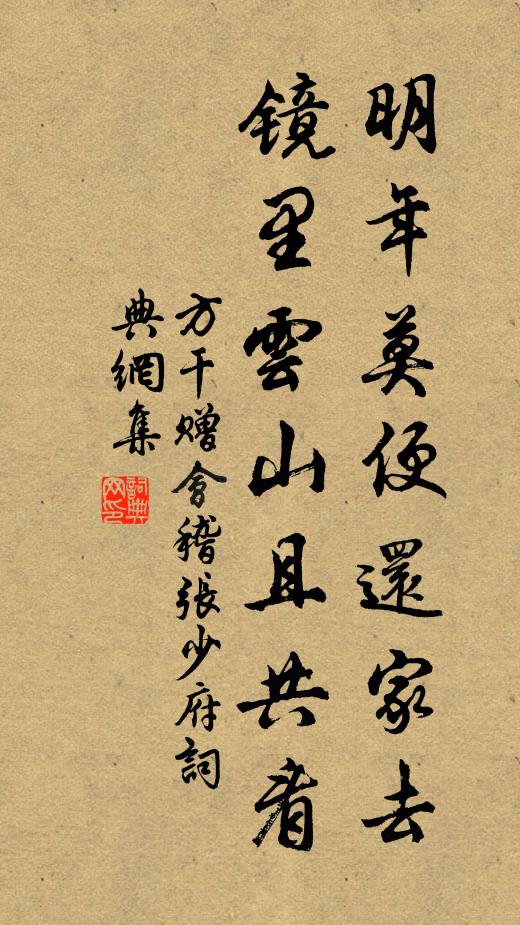 明年莫便還家去
镜里雲山且共看
方干赠會稽張少府詞
典網集
詞典网印